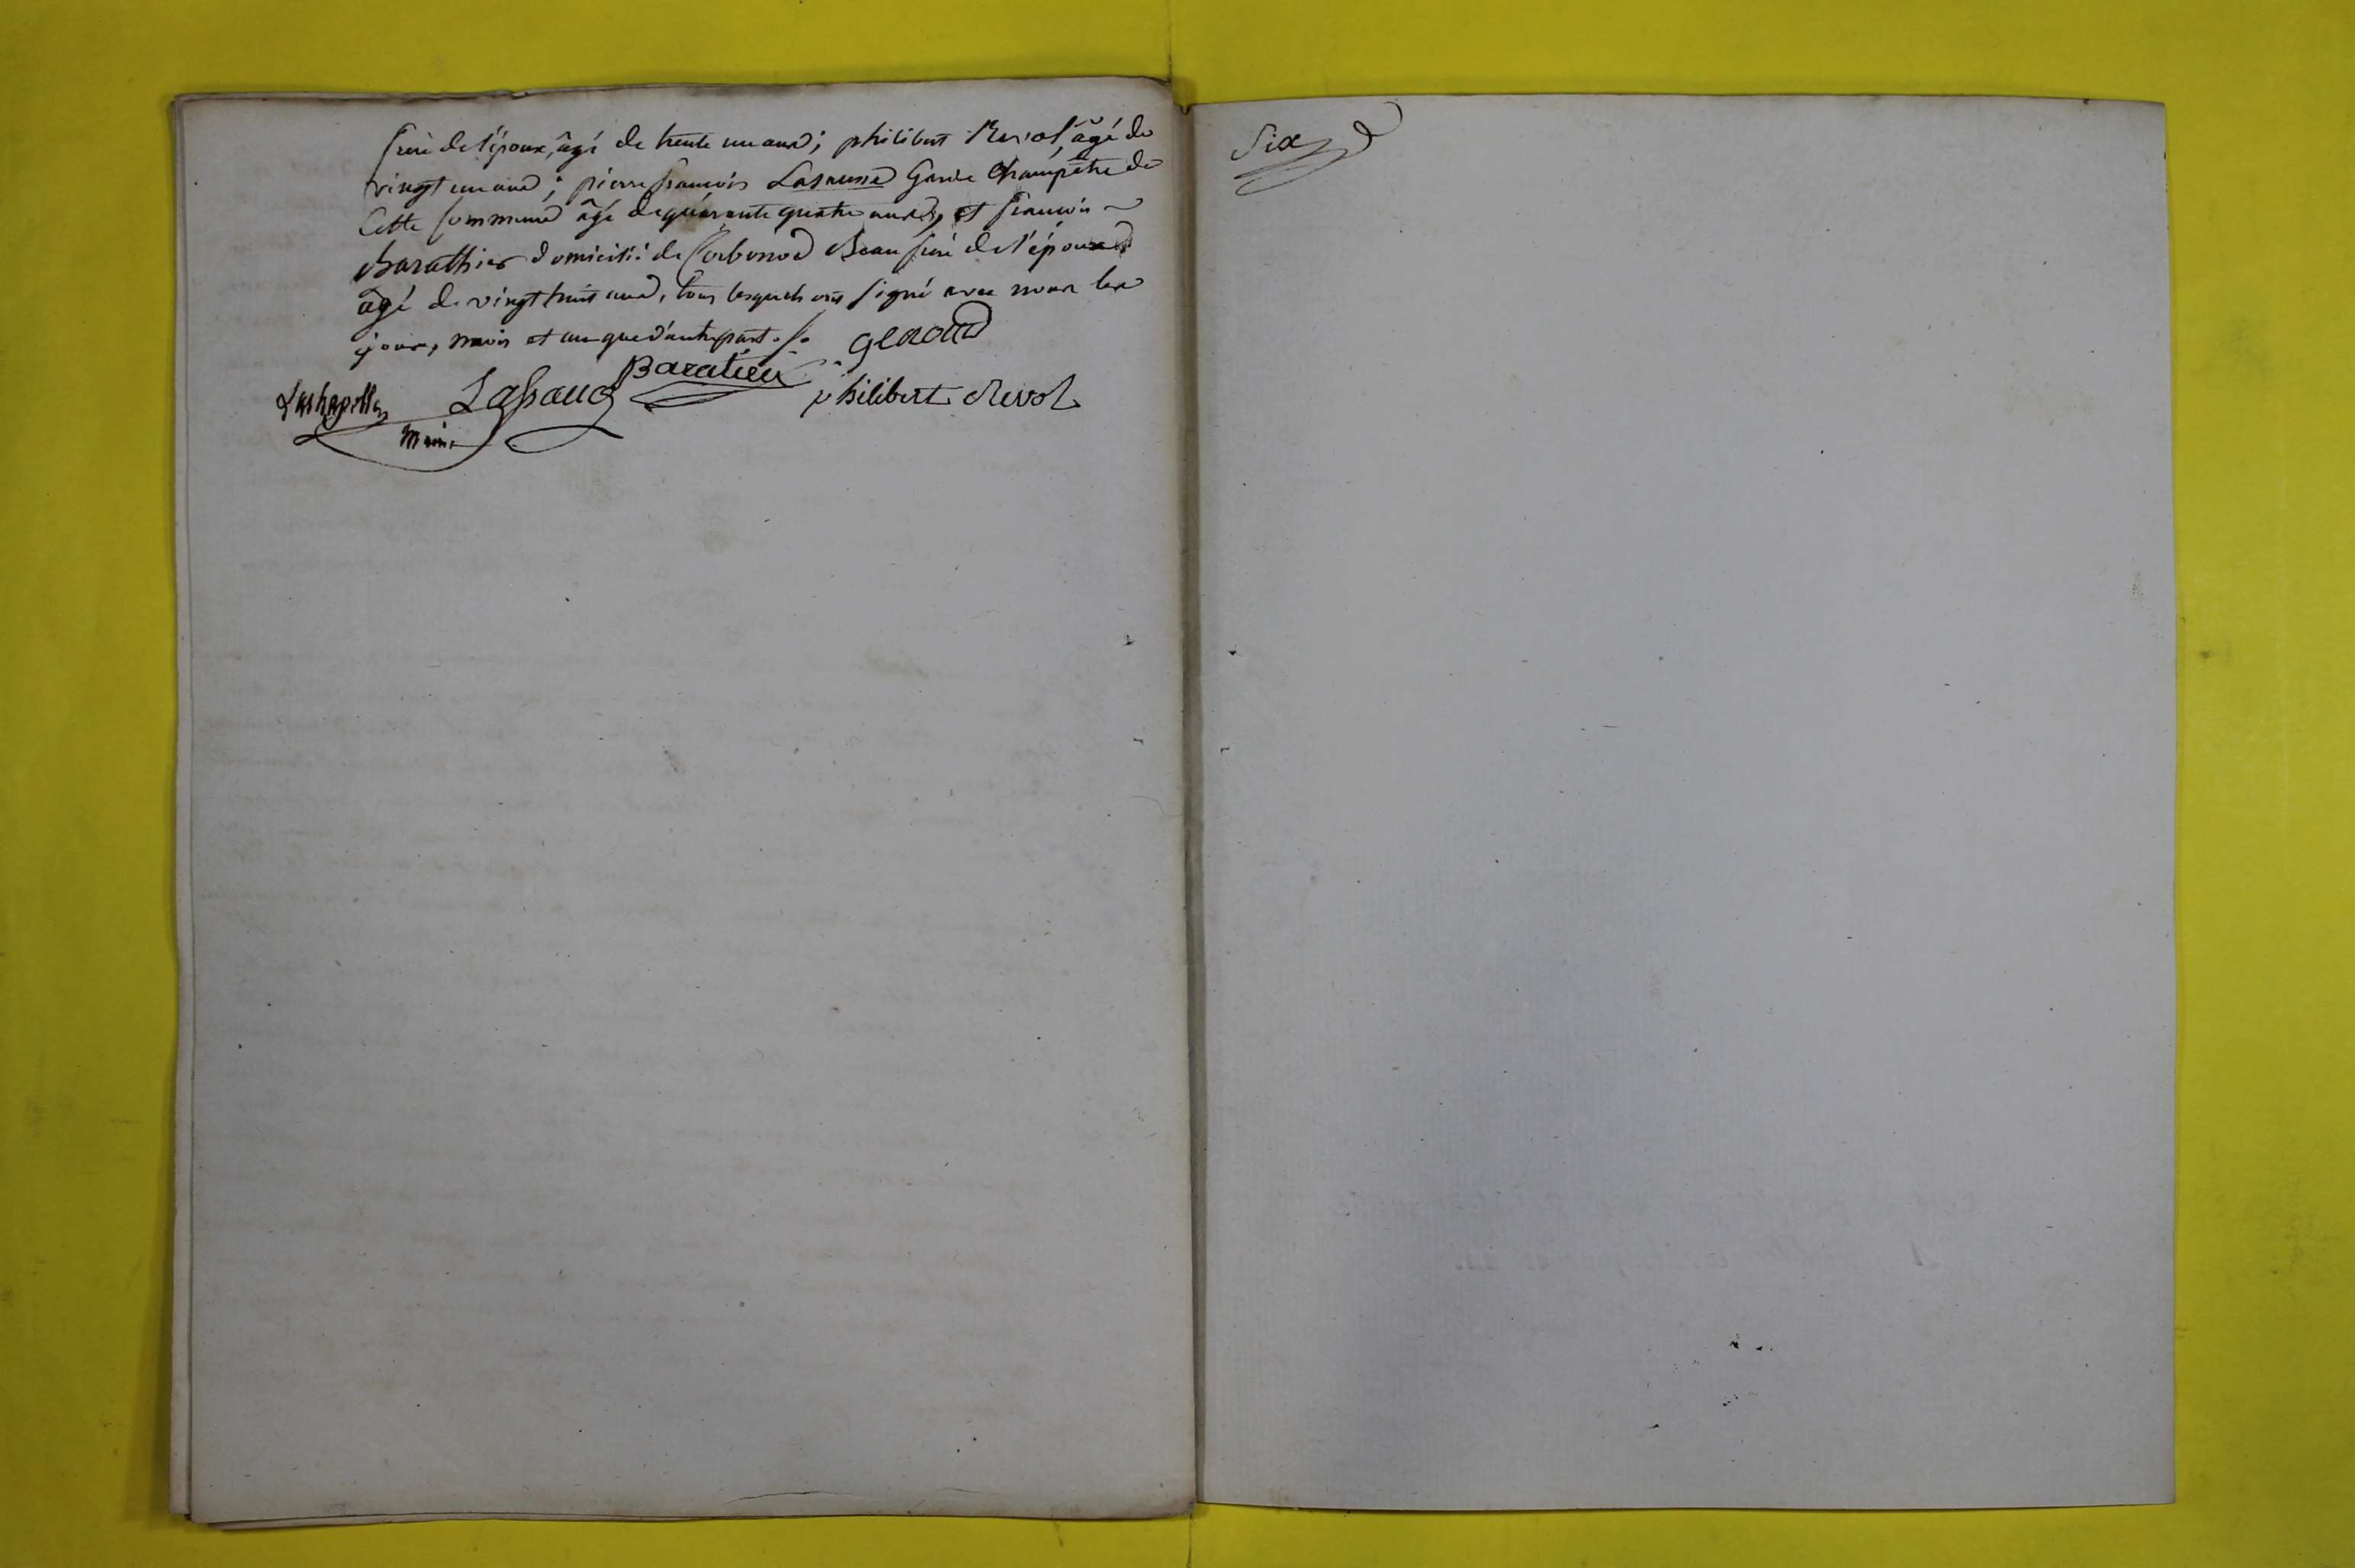 frere de l'époux, âgé de trente un ans; philibert Revol, âgé de
vingt un ans; pierre francois Lasausse Garde Champêtre de
Cette Commune âgé de quarante quatre ans, et francois
Barathier domicilié de Corbonod Beau frere de l'époux
âgé de vingt huit ans, tous lesquels ont signé avec nous les
jour, mois et an que d'autre part.
GEROUD
Baratier
philibert Revol
Maire
Six